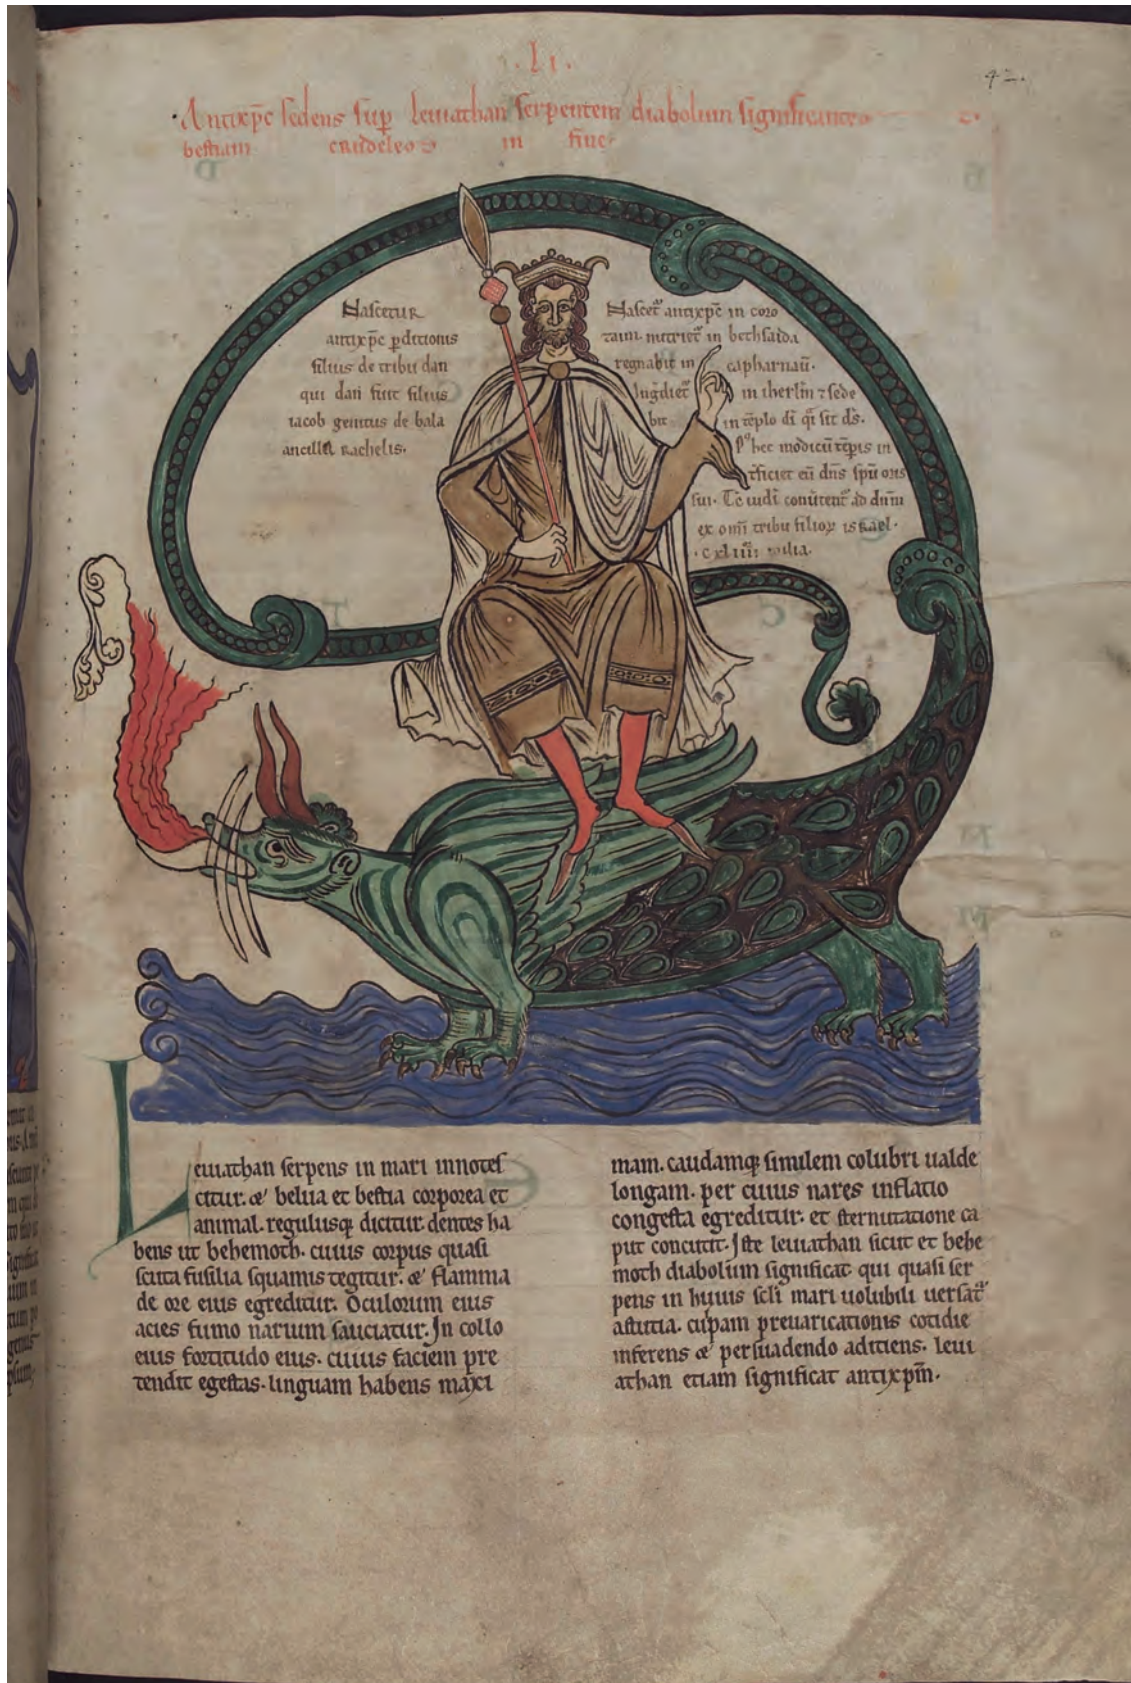 .LI.
42.
Antixp̄c sedens sup leuiathan serpentem diabolum significantē
bestiam crudelē in fine
Nascetur
antixp̄c p̄ditionis
filius de tribu dan
qui dan fuit filius
iacob genitus de bala
ancilla rachelis.
Nascet᷑ antixp̄c in coro
zaim. nutriet᷑ in bethsaida
regnabit in capharnaū.
in iherl̄m ⁊ sede
bit in tēplo dī q̄i sit d̄s.
P᷑ hec modicū tēpis in
t᷑ficiet eū dn̄s sp̄u oris
sui. Tc̄ iudī conūtent᷑ ad dn̄m
ex om̄i tribu filioꝝ israel.
.cxliiii milia.
Leuiathan serpens in mari innotes
citur. & belua et bestia corporea et
animal. regulusq; dicitur. dentes ha
bens ut behemoth. cuius corpus quasi
scuta fusilia squamis tegitur. & flamma
de ore eius egreditur. Oculorum eius
acies fumo narium sauciatur. In collo
eius fortitudo eius. cuius faciem pre
tendit egestas. linguam habens maxi
mam. caudamq; similem colubri ualde
longam. per cuius nares inflatio
congesta egreditur. et sternutatione ca
put concutit. Iste leuiathan sicut et behe
moth diabolum significat. qui quasi ser
pens in huius sc̄li mari uolubili uersat᷑
astutia. culpam preuaricationis cotidie
inferens & persuadendo aditiens. leui
athan etiam significat antixp̄m.